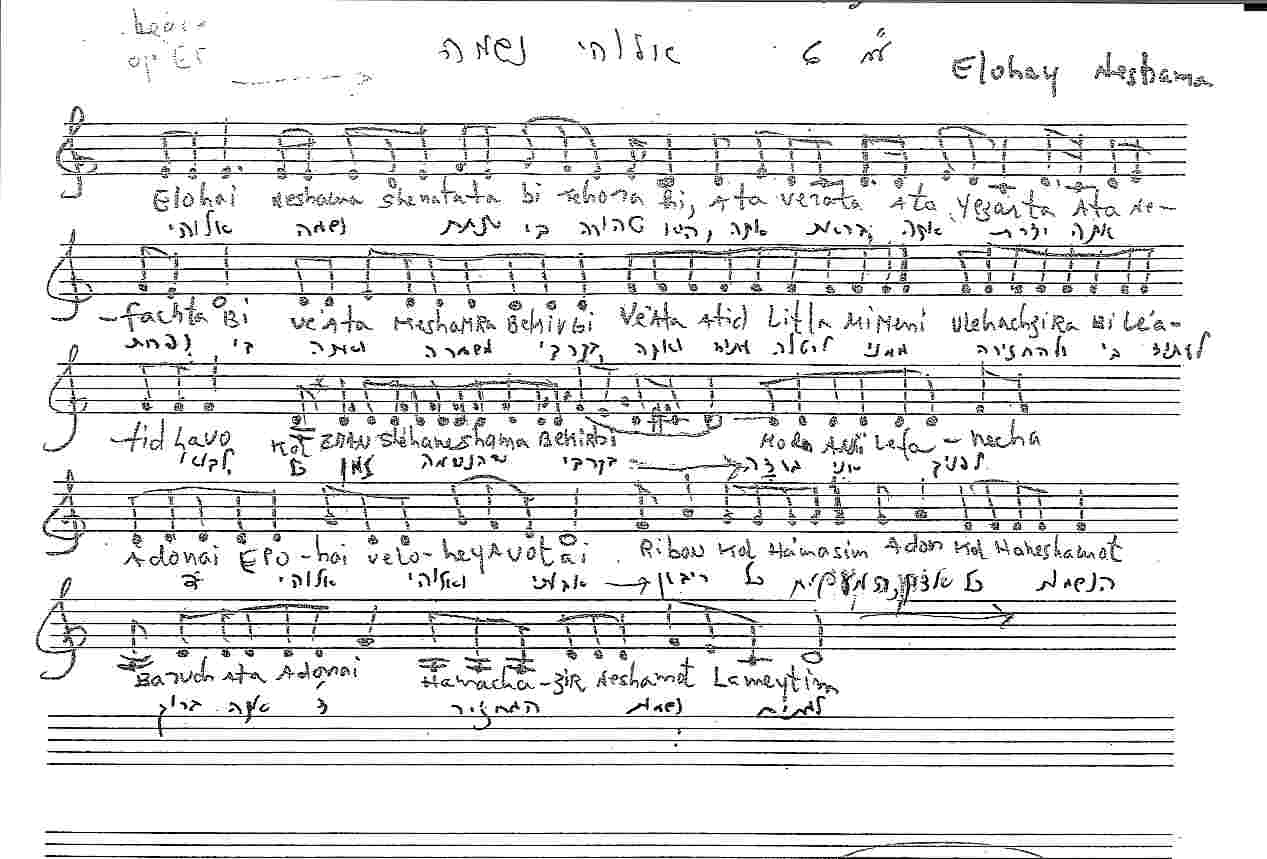 אלוהי נשמה 6 Elohay Neshama
Elohai Neshama Shenatata bi tehora hi, Ata verata Ata Yezarta Ata Ne-
אלוהי נשמה שנתת בי טהורה היא, אתה בראת אתה יצרת אתה
-fachta Bi Ve'Ata Meshamra Bekirbi Ve'Ata Atid Litla Mimeni Ulehachzira Bi Le'a-
נפחת בי ואתה משמרה בקרבי, ואתה עתיד ליטלה ממני ולהחזירה בי לעתיד
tid Lavo Kol Zman Shehaneshama Bekirbi Mode Ani Lefa-necha
לבוא, כל זמן שהנשמה בקרבי מודה אני לפניך
Adonai Elo-hai velo-hey Avotai Ribon Kol Hamasim Adon Kol Haneshamot
אלוהי ואלוהי אבותי ריבון כל המעשים, אדון כל הנשמות
Baruch Ata Adonai Hamacha-zir Neshamot Lameytim
ברוך אתה המחזיר נשמות למתים